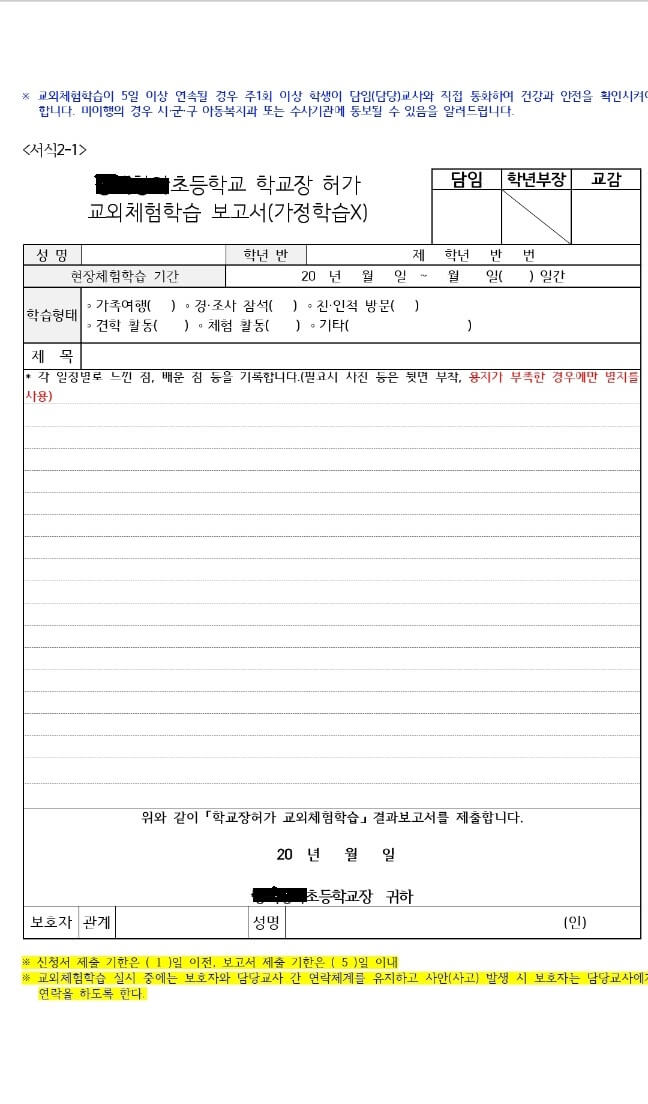 ※ 교외체험학습이 5일 이상 연속될 경우 주1회 이상 학생이 담임(담당)교사와 직접 통화하여 건강과 안전을 확인시켜야
합니다. 미이행의 경우 시·군·구 아동복지과 또는 수사기관에 통보될 수 있음을 알려드립니다.
<서식2-1>
초등학교 학교장 허가
교외체험학습 보고서(가정학습X)
담임 학년부장 교감
성 명 학년 반 제 학년 반 번
현장체험학습 기간 20 년 월 일 ~ 월 일( ) 일간
학습형태
◦ 가족여행( ) ◦ 경·조사 참석( ) ◦ 친·인척 방문( )
◦ 견학 활동( ) ◦ 체험 활동( ) ◦ 기타( )
제 목
* 각 일정별로 느낀 점, 배운 점 등을 기록합니다.(필요시 사진 등은 뒷면 부착, 용지가 부족한 경우에만 별지를
사용)
위와 같이 「학교장허가 교외체험학습」 결과보고서를 제출합니다.
20 년 월 일
초등학교장 귀하
보호자 관계 성명 (인)
※ 신청서 제출 기한은 ( 1 )일 이전, 보고서 제출 기한은 ( 5 )일 이내
※ 교외체험학습 실시 중에는 보호자와 담당교사 간 연락체계를 유지하고 사안(사고) 발생 시 보호자는 담당교사에게
연락을 하도록 한다.